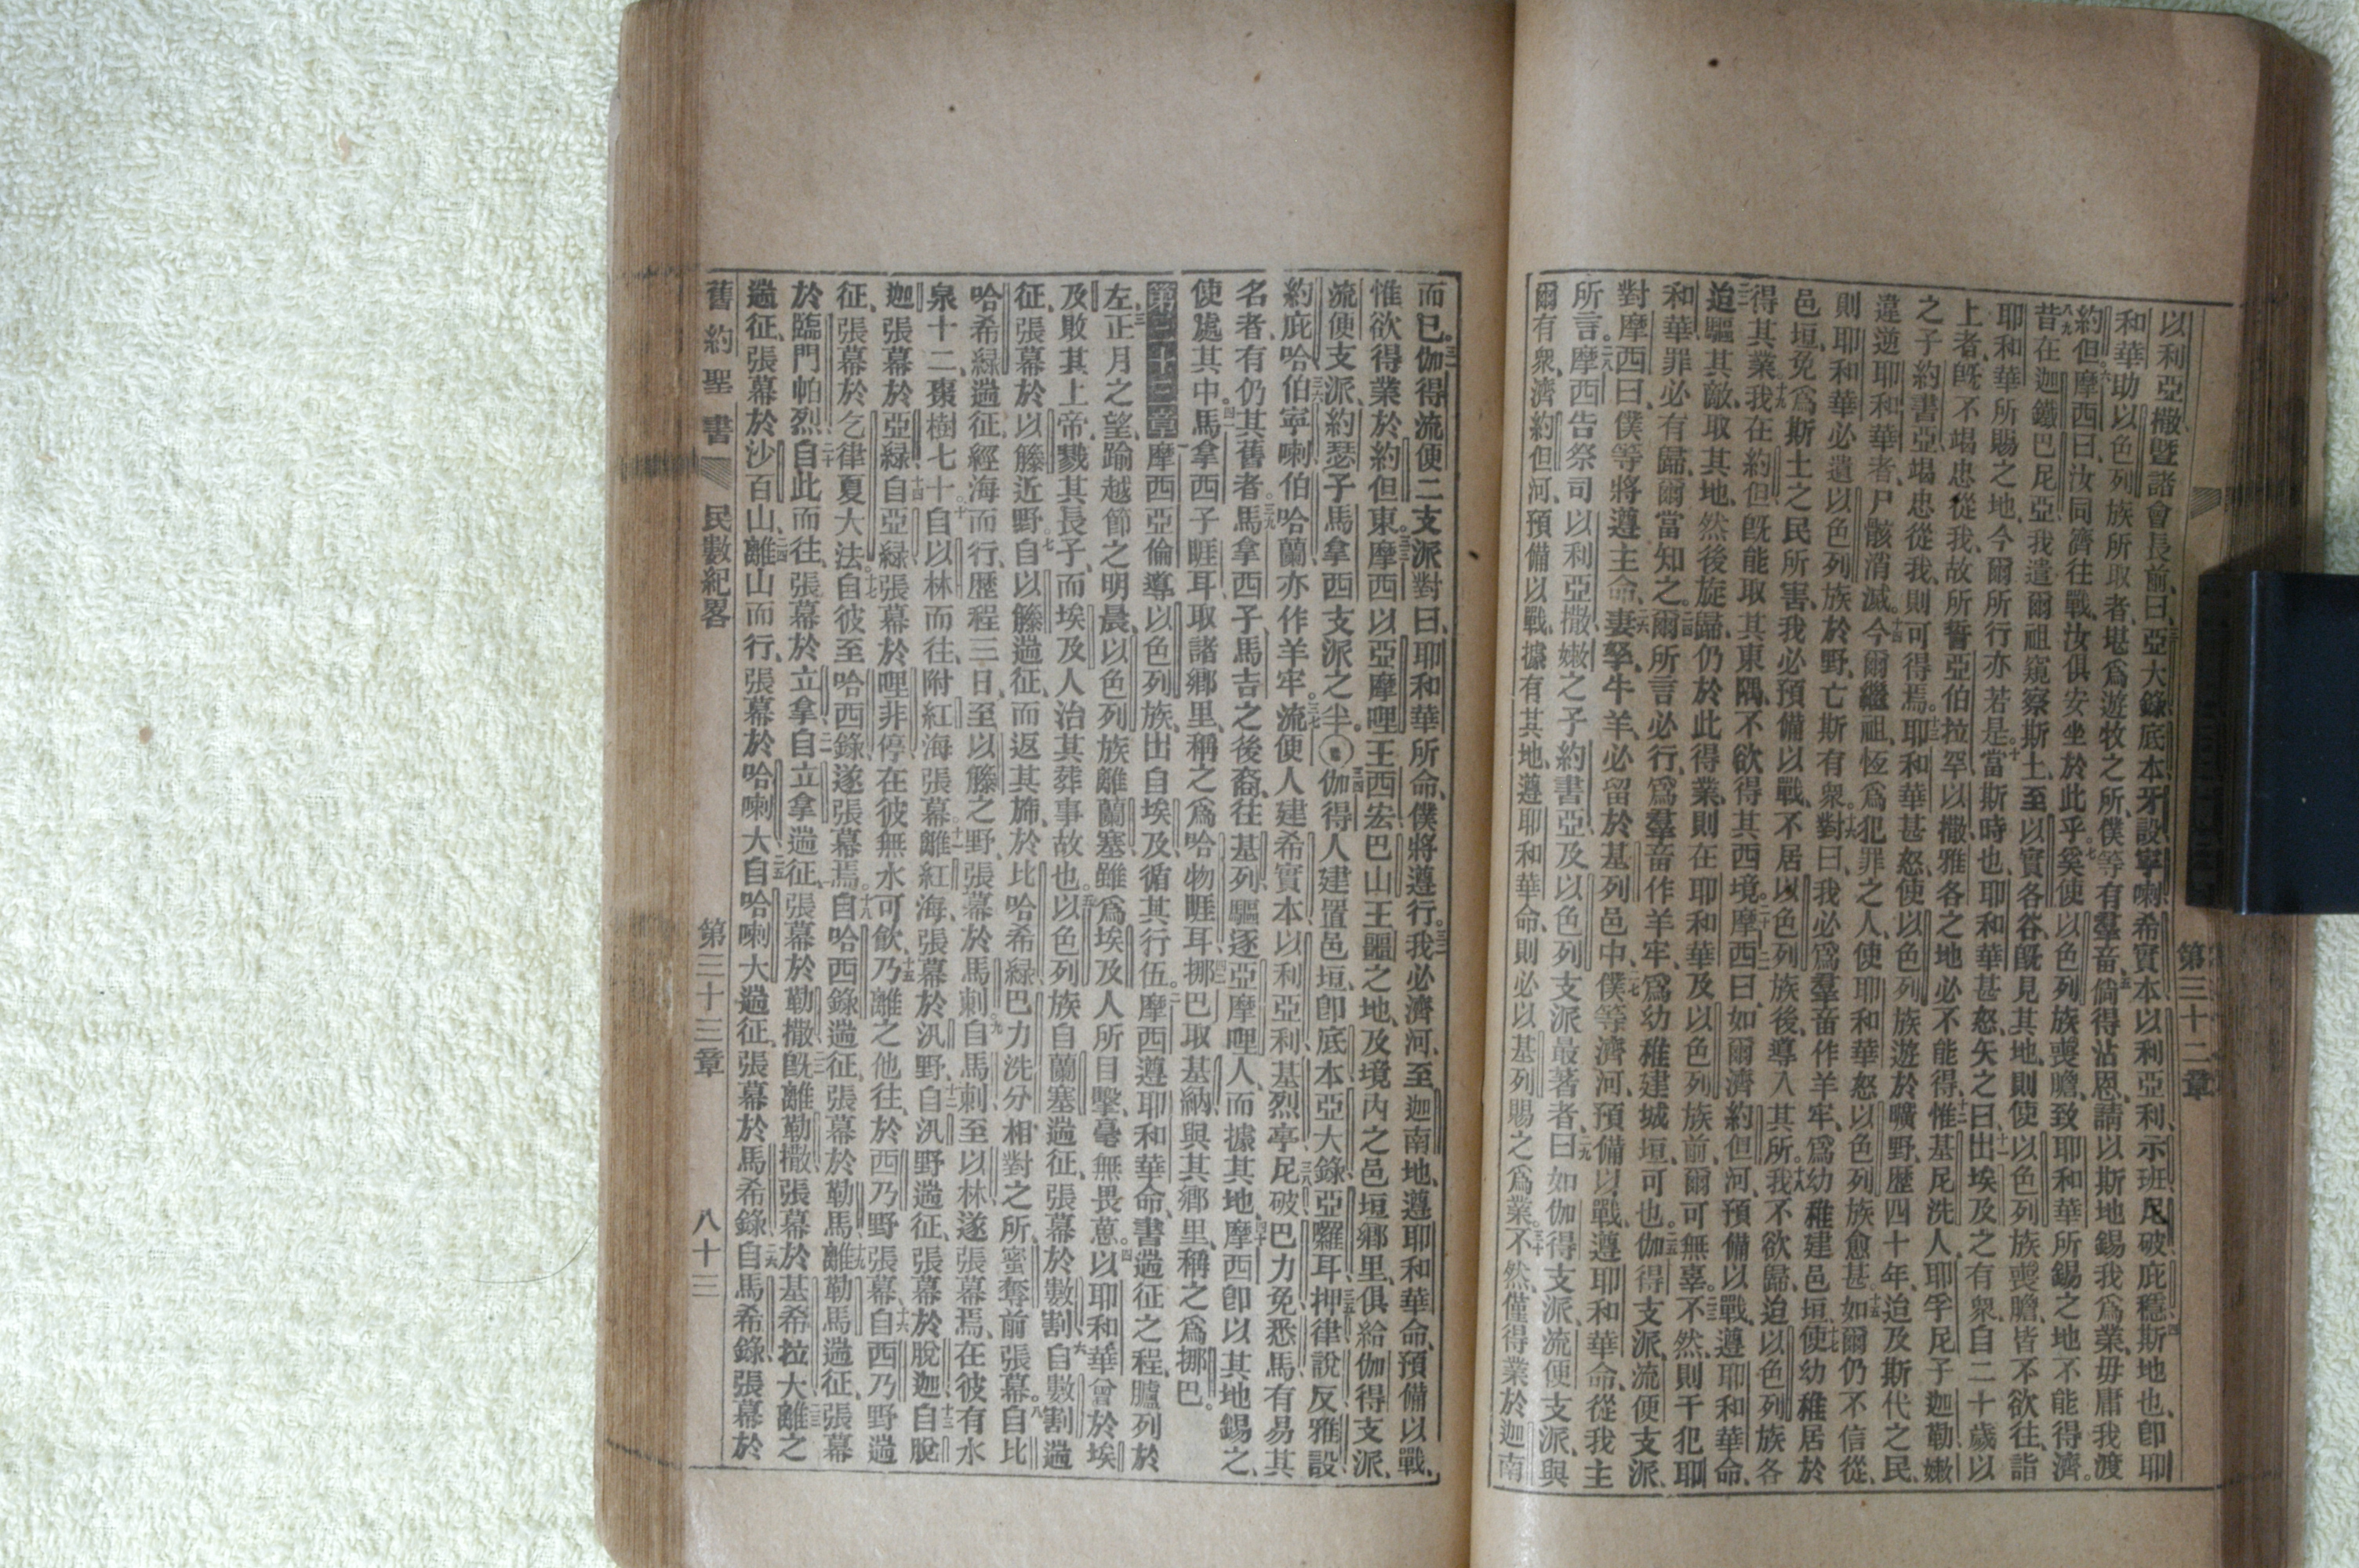 以利亞撒、暨諸會長前、曰、三亞大錄、底本、牙設、寧喇、希實本、以利亞利、示班、尼破、庇穩、四斯地也、卽耶
和華助以色列族所取者、堪爲遊牧之所、僕等有羣畜、五倘得沾恩、請以斯地錫我爲業、毋庸我渡
約但。六摩西曰、汝同儕往戰、汝俱安坐於此乎。七奚使以色列族喪膽、致耶和華所錫之地不能得濟。
八九昔在迦鐵巴尼亞、我遣爾祖窺察斯土、至以實各谷、旣見其地、則使以色列族喪膽、皆不欲往、詣
耶和華所賜之地、今爾所行亦若是。十當斯時也、耶和華甚怒、矢之曰、十一出埃及之有衆、自二十歲以
上者、旣不竭忠從我、故所誓亞伯拉罕、以撒、雅各之地、必不能得、十二惟基尼洗人、耶孚尼子迦勒、嫩
之子約書亞、竭忠從我、則可得焉。十三耶和華甚怒、使以色列族遊於曠野、歷四十年、迨及斯代之民、
違逆耶和華者、尸骸消滅。十四今爾繼祖、恆爲犯罪之人、使耶和華怒以色列族愈甚。十五如爾仍不信從、
則耶和華必遺以色列族於野、亡斯有衆。十六對曰、我必爲羣畜作羊牢、爲幼稚建邑垣、十七使幼稚居於
邑垣、免爲斯土之民所害、我必預備以戰、不居以色列族後、導入其所。十八我不欲歸、迨以色列族各
得其業、十九我在約但旣能取其東隅、不欲得其西境。二十二一摩西曰、如爾濟約但河、預備以戰、遵耶和華命、
迨驅其敵、取其地、然後旋歸、仍於此得業、則在耶和華及以色列族前、爾可無辜。二三不然、則干犯耶
和華、罪必有歸、爾當知之。二四爾所言必行、爲羣畜作羊牢、爲幼稚建城垣可也。二五伽得支派、流便支派、
對摩西曰、僕等將遵主命、二六妻孥、牛羊、必留於基列邑中、二七僕等濟河、預備以戰、遵耶和華命、從我主
所言。二八摩西告祭司以利亞撒、嫩之子約書亞、及以色列支派最著者、二九曰、如伽得支派、流便支派、與
爾有衆、濟約但河、預備以戰、據有其地、遵耶和華命、則必以基列賜之爲業。三十不然、僅得業於迦南
第三十二章
而已。三一伽得流便二支派對曰、耶和華所命、僕將遵行。三二我必濟河、至迦南地、遵耶和華命、預備以戰、
惟欲得業於約但東。三三摩西以亞摩哩王西宏、巴山王噩之地、及境內之邑垣鄉里、俱給伽得支派、
流便支派、約瑟子馬拿西支派之半。三四伽得人建置邑垣、卽底本、亞大錄、亞囉耳、三五押律說反、雅設、
約庇哈、三六伯寧喇、伯哈蘭、亦作羊牢。三七流便人建希實本、以利亞利、基烈亭、三八尼破、巴力免、悉馬、有易其
名者、有仍其舊者。三九馬拿西子、馬吉之後裔、往基列、驅逐亞摩哩人、而據其地、四十摩西卽以其地錫之、
使處其中、四一馬拿西子睚耳取諸鄉里、稱之爲哈物睚耳、四二挪巴取基納、與其鄉里、稱之爲挪巴。
第三十三章 一摩西亞倫導以色列族、出自埃及、循其行伍。二摩西遵耶和華命、書遄征之程、臚列於
左、三正月之望、踰越節之明晨、以色列族離蘭塞、雖爲埃及人所目擊、毫無畏葸。四以耶和華曾於埃
及敗其上帝、戮其長子、而埃及人治其葬事故也。五以色列族自蘭塞遄征、張幕於數割、六自數割遄
征、張幕於以籐近野。七自以籐遄征、而返其旆、於比哈希綠、巴力洗分相對之所、蜜奪前張幕。八自比
哈希綠遄征、經海而行、歷程三日、至以籐之野、張幕於馬剌。九自馬剌至以林、遂張幕焉、在彼有水
泉十二、棗樹七十。十自以林而往、附紅海張幕。十一離紅海、張幕於汛野、十二自汛野遄征、張幕於脫迦、十三自脫
迦張幕於亞綠、十四自亞綠張幕於哩非停、在彼無水可飲、十五乃離之他往、於西乃野張幕、十六自西乃野遄
征、張幕於乞律夏大法。十七自彼至哈西錄、遂張幕焉。十八自哈西錄遄征、張幕於勒馬、十九離勒馬遄征、張幕
於臨門帕烈、二十自此而往、張幕於立拿、二一自立拿遄征、張幕於勒撒、二二旣離勒撒、張幕於基希拉大、二三離之
遄征、張幕於沙百山、二四離山而行、張幕於哈喇大、二五自哈喇大遄征、張幕於馬希錄、二六自馬希錄、張幕於
舊約聖書 民數紀畧 第三十三章 八十三